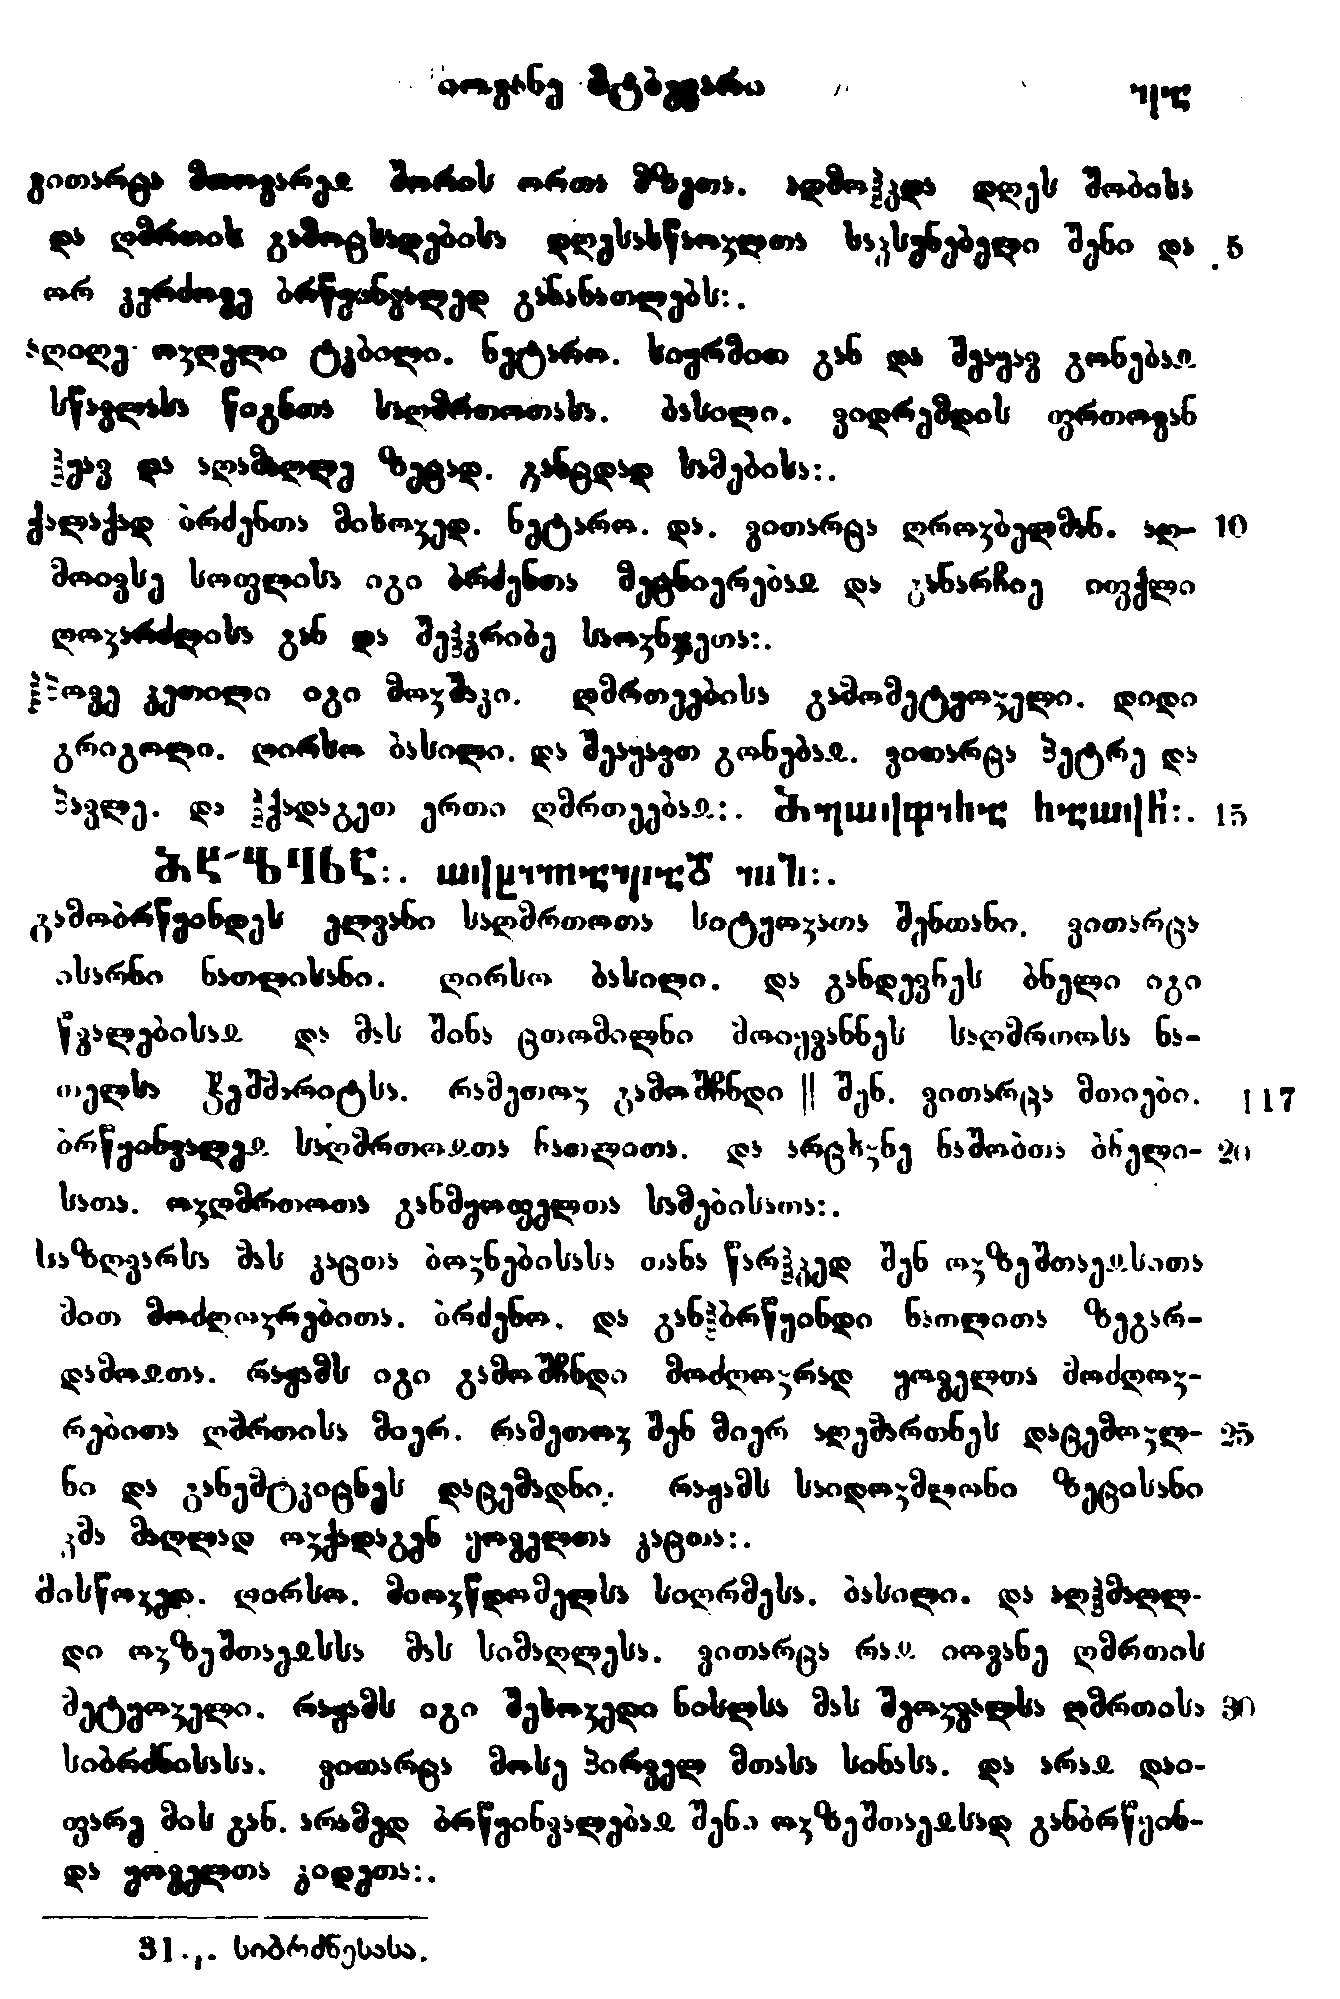 იოვანე მტბევარი
ვითარცა მთოვარეჲ შორის ორთა მზეთა. აღმოჰკდა დღეს შობისა
და ღმრთის გამოცხადებისა დღესასწაოჳლთა საჴსენებელი შენი და 5
ორ კერძოვე ბრწყინვალედ განანათლებს:.
აღიღე ოჳღელი ტკბილი. ნეტარო. სიყრმით გან და შეაყავ გონებაჲ
სწავლასა წიგნთა საღმრთოთასა. ბასილი. ვიდრემდის ფრთოვან
ჰყავ და აღამაღლე ზეცად. განცდად სამებისა:.
ქალაქად ბრძენთა მიხოჳედ. ნეტარო. და. ვითარცა ღროჳბელმან. აღ- 10
მოივსე სოფლისა იგი ბრძენთა მეცნიერებაჲ და განარჩიე იფქლი
ღოჳარძლისა გან და შეჰკრიბე საოჳნჯეთა:.
ჰპოვე კეთილი იგი მოჳშაკი. ღმრთეებისა გამომეტყოჳელი. დიდი
გრიგოლი. ღირსო ბასილი. და შეაყავთ გონებაჲ. ვითარცა პეტრე და
პავლე. და ჰქადაგეთ ერთი ღმრთეებაჲ:. 15
გამობრწყინდეს ელვანი საღმრთოთა სიტყოჳათა შენთანი. ვითარცა
ისარნი ნათლისანი. ღირსო ბასილი. და განდევნეს ბნელი იგი
წვალებისაჲ და მას შინა ცთომილნი მოიყვანნეს საღმრთოსა ნა-
თელსა ჭეშმარიტსა. რამეთოჳ გამოშჩნდი || შენ. ვითარცა მთიები. 117
ბრწყინვალეჲ საღმრთოჲთა ნათლითა. და არცხჳნე ნაშობთა ბნელი- 20
სათა. ოჳღმრთოთა განმყოფელთა სამებისათა:.
საზღვარსა მას კაცთა ბოჳნებისასა თანა წარჰკედ შენ ოჳზეშთაეჲსითა
მით მოძღოჳრებითა. ბრძენო. და განჰბრწყინდი ნათლითა ზეგარ-
დამოჲთა. რაჟამს იგი გამოშჩნდი მოძღოჳრად ყოველთა მოძღოჳ-
რებითა ღმრთისა მიერ. რამეთოჳ შენ მიერ აღემართნეს დაცემოჳლ- 25
ნი და განემტკიცნეს დაცემადნი. რაჟამს საიდოჳმლონი ზეცისანი
ჴმა მაღლად ოჳქადაგენ ყოველთა კაცთა:.
მისწოჳედ. ღირსო. მიოჳწდომელსა სიღრმესა. ბასილი. და აღჰმაღლ-
დი ოჳზეშთაეჲსსა მას სიმაღლესა. ვითარცა რაჲ იოვანე ღმრთის
მეტყოჳელი. რაჟამს იგი შეხოჳედი ნისლსა მას შეოჳვალსა ღმრთისა 30
სიბრძნისასა. ვითარცა მოსე პირველ მთასა სინასა. და არაჲ დაი-
ფარე მის გან. არამედ ბრწყინვალებაჲ შენი ოჳზეშთაეჲსად განბრწყინ-
და ყოველთა კიდეთა:.
31.,. სიბრძნესასა.